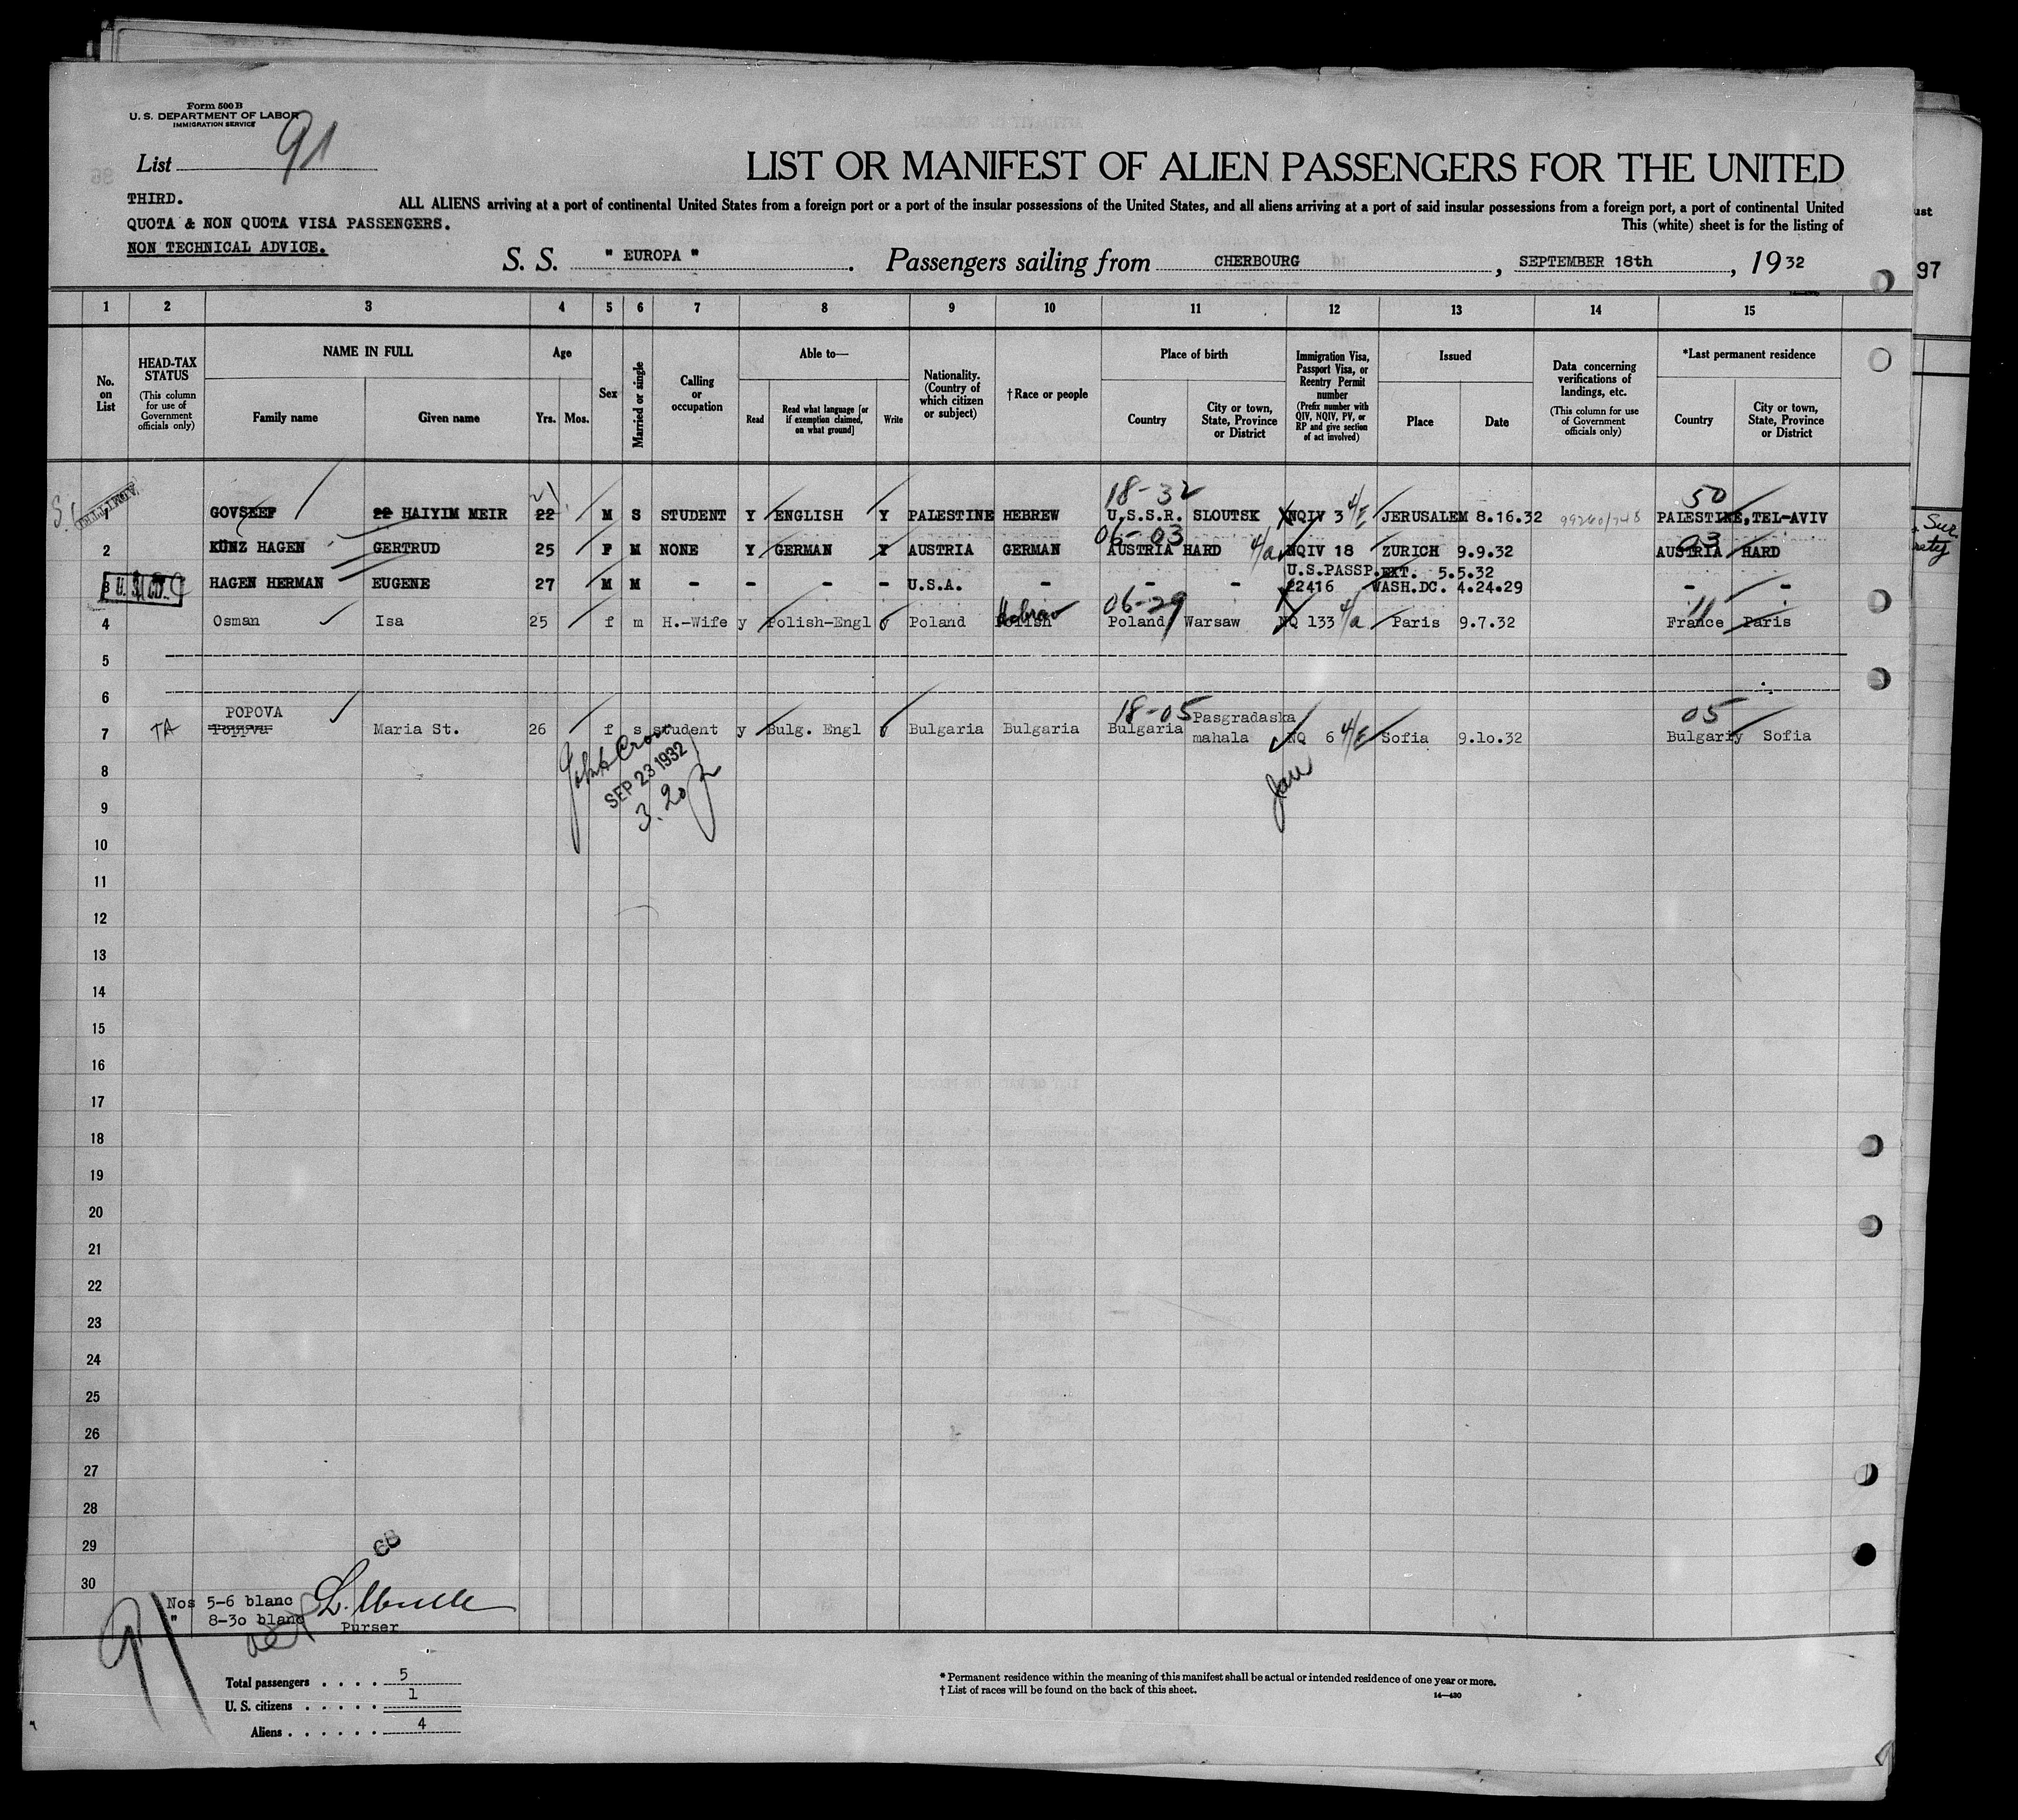 Form 500 B
U. S. DEPARTMENT OF LABOR
IMMIGRATION SERVICE
List 91
LIST OR MANIFEST OF ALIEN PASSENGERS FOR THE UNITED
THIRD.
QUOTA & NON QUOTA VISA PASSENGERS.
NON TECHNICAL ADVICE.
ALL ALIENS arriving at a port of continental United States from a foreign port or a port of the insular possessions of the United States, and all aliens arriving at a port of said insular possessions from a foreign port, a port of continental United
This (white) sheet is for the listing of
S. S. " EUROPA " . Passengers sailing from CHERBOURG , SEPTEMBER 18th , 19 32
97
1 2 3 4 5 6 7 8 9 10 11 12 13 14 15
No. on List
HEAD-TAX STATUS
(This column for use of Government officials only)
NAME IN FULL
Family name
Given name
Age
Yrs. Mos.
Sex
Married or single
Calling or occupation
Able to—
Read
Read what language [or if exemption claimed, on what ground]
Write
Nationality. (Country of which citizen or subject)
† Race or people
Place of birth
Country
City or town, State, Province or District
Immigration Visa, Passport Visa, or Reentry Permit number
(Prefix number with QIV, NQIV, PV, or RP and give section of act involved)
Issued
Place
Date
Data concerning verifications of landings, etc.
(This column for use of Government officials only)
*Last permanent residence
Country
City or town, State, Province or District
21 18-32 50
1 GOVSEEF 22 HAIYIM MEIR 22 M S STUDENT Y ENGLISH Y PALESTINE HEBREW U.S.S.R. SLOUTSK NQIV 3 4/E JERUSALEM 8.16.32 PALESTINE, TEL-AVIV
06-03 03
2 KÜNZ HAGEN GERTRUD 25 F M NONE Y GERMAN Y AUSTRIA GERMAN AUSTRIA HARD 4/a NQIV 18 ZURICH 9.9.32 AUSTRIA HARD
U.S.PASSP. EXT. 5.5.32
3 HAGEN HERMAN EUGENE 27 M M - - - - U.S.A. - - - 22416 WASH.DC. 4.24.29 - -
Hebrew 06-29 11
4 Osman Isa 25 f m H.-Wife y Polish-Engl y Poland Polish Poland Warsaw NQ 133 4/a Paris 9.7.32 France Paris
5
6
POPOVA 18-05 Pasgradaska 05
7 TA Poppva Maria St. 26 f s student y Bulg. Engl y Bulgaria Bulgaria Bulgaria mahala NQ 6 4/E Sofia 9.10.32 Bulgariy Sofia
SEP 23 1932
3.20
8
9
10
11
12
13
14
15
16
17
18
19
20
21
22
23
24
25
26
27
28
29
30
68
Nos 5-6 blanc
" 8-30 blanc
Purser
91
Total passengers . . . . 5
U. S. citizens . . . . . 1
Aliens . . . . . . 4
* Permanent residence within the meaning of this manifest shall be actual or intended residence of one year or more.
† List of races will be found on the back of this sheet.
14—430